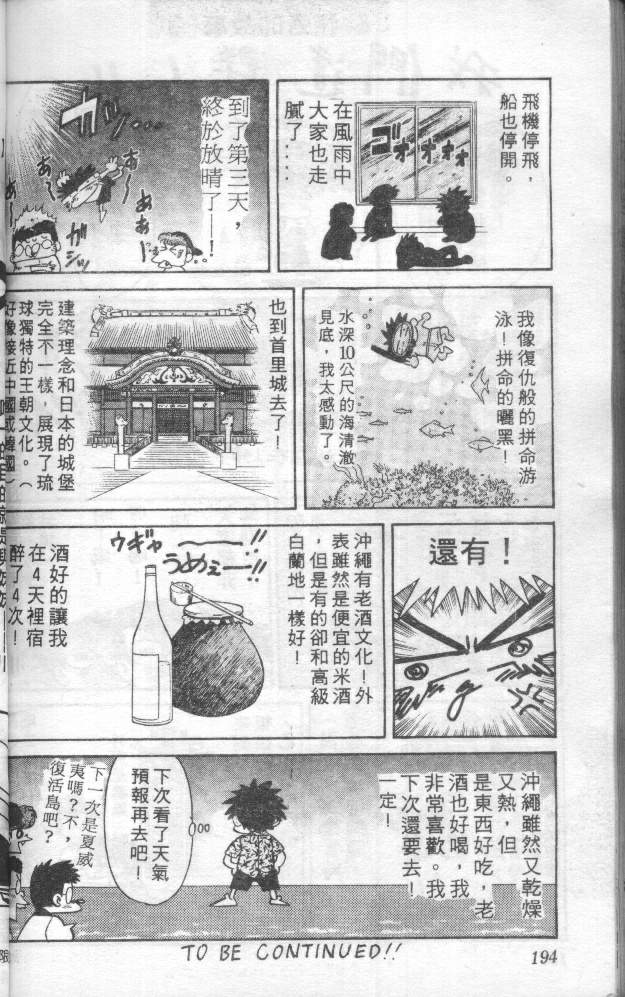 飛機停飛，
船也停開。
ゴォォォォ
在風雨中
大家也走
膩了‥‥
到了第三天，
終於放晴了──！
カッ。。。
あ～
お～
あぁ～
我像復仇般的拼命游
泳！拼命的曬黑！
水深10公尺的海清澈
見底，我太感動了。
也到首里城去了！
建築理念和日本的城堡
完全不一樣，展現了琉
球獨特的王朝文化。（
好像接近中國或韓國）
還有！
沖繩有老酒文化！外
表雖然是便宜的米酒
，但是有的卻和高級
白蘭地一樣好！
ウギャ──!!
うめぇ──!!
酒好的讓我
在4天裡宿
醉了4次！
沖繩雖然又乾燥
又熱，但
是東西好吃，老
酒也好喝，我
非常喜歡。我
下次還要去！
一定！
下次看了天氣
預報再去吧！
下一次是夏威
夷嗎？不，
復活島吧？
TO BE CONTINUED!!
194